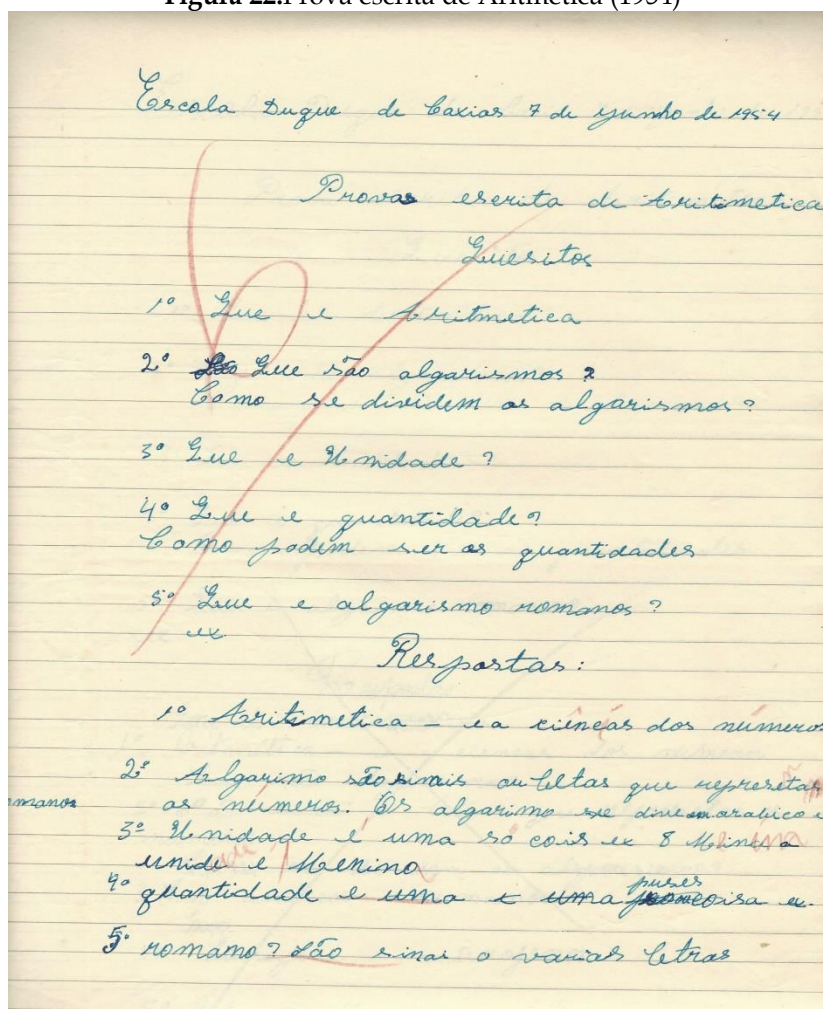 Figura 22. Prova escrita de Aritmética (1954)
Escola Duque de Caxias 7 de yunho de 1954
Provas escrita de Aritimetica
Quiesitos
1º Que e Aritmetica
2º Que são algarismos ?
Como se dividem os algarismos ?
3º Que e Unidade ?
4º Que e quantidade ?
Como podem ser as quantidades
5º Que e algarismo romanos ?
ex
Respostas:
1º Aritimetica - e a ciencas dos números
2º Algarimo são sinais ou leltas que represetas
os números. Os algarimo se divem arabico e
romanos
3º Unidade é uma só cois ex 8 Menino a
unide e Menino
4º quantidade e uma e uma coisa ex.
5º romamo ? São sinai o varias letras